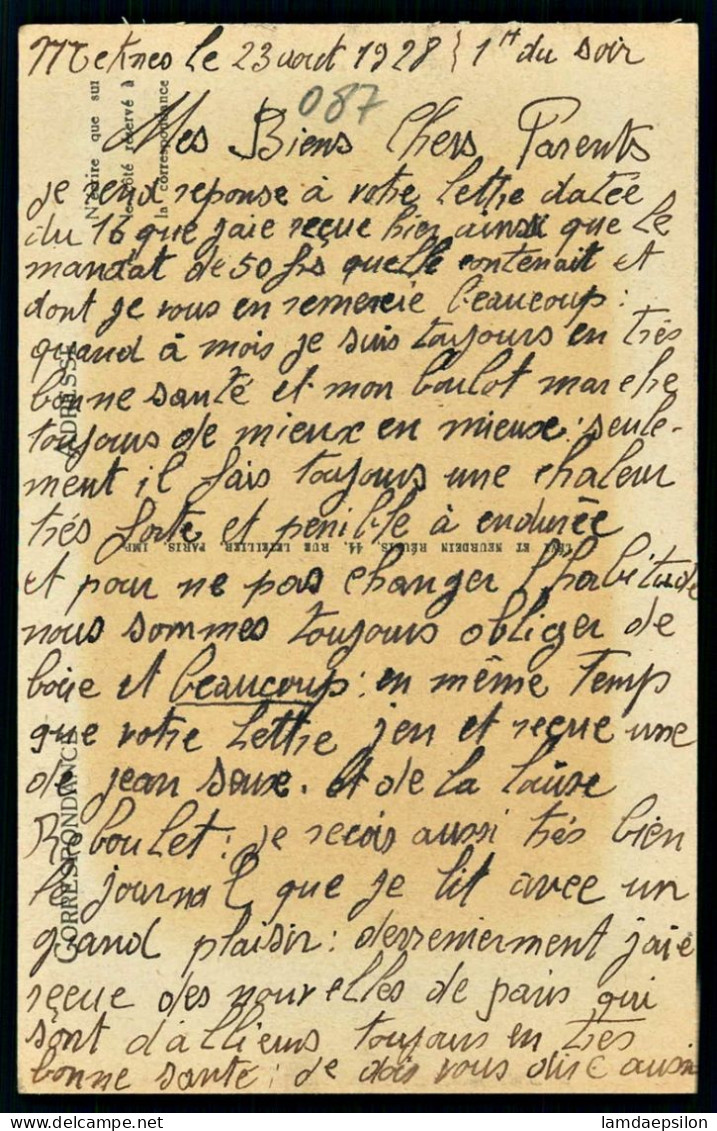 Meknes le 23 aout 1928 } 1 H du soir
087
Mes Biens Chers Parents
je rend reponse à votre lettre datée
du 16 que jaie reçue hier ainsi que le
mandat de 50 frs quelle contenait et
dont je vous en remercie beaucoup :
quand à mois je suis toujours en très
bonne santé et mon boulot marche
toujours de mieux en mieux : seule-
ment il fais toujours une chaleur
très forte et penible à endurée
et pour ne pas changer l'habitude
nous sommes toujours obliger de
boire et beaucoup : en même temp
que votre lettre jen et reçue une
de jean . et de la
Reboulet : je reçois aussi très bien
le journal que je lit avec un
grand plaisir : dernierment jaie
reçue des nouvelles de paris qui
sont d'allieurs toujours en très
bonne santé : je dois vous dire aussi
N'écrire que sur
le côté réservé à
la correspondance
ADRESSE
CORRESPONDANCE
LÉVY ET NEURDEIN RÉUNIS, 44, RUE LETELLIER, PARIS, IMP.
lamdaepsilon